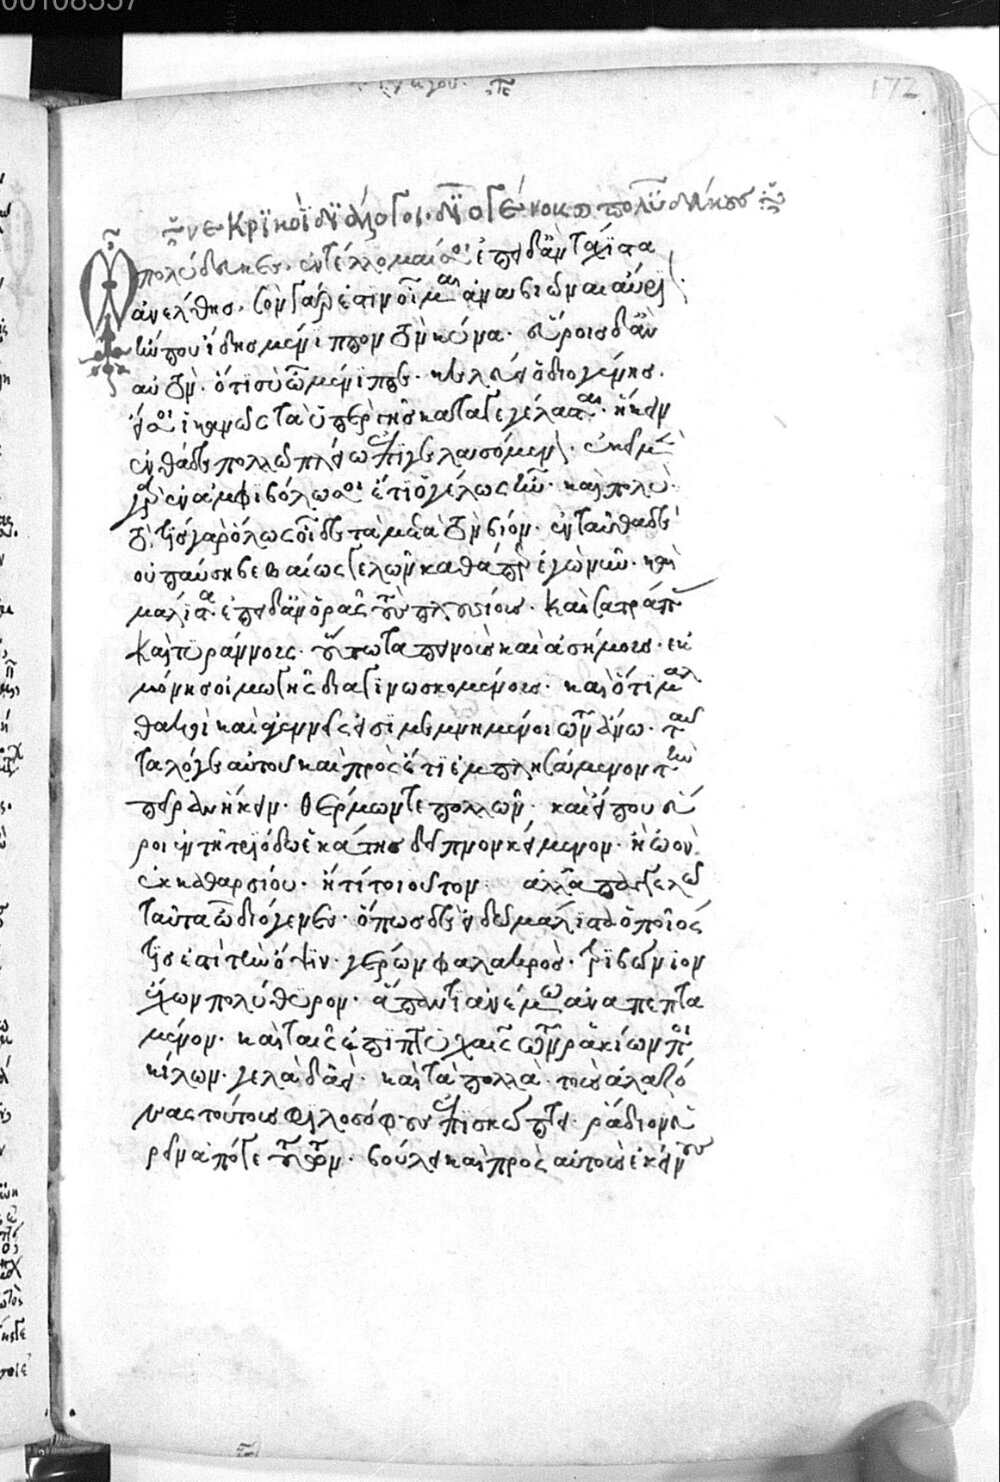 00108337
172
νεκρικοὶ διάλογοι. διογένους καὶ πολυδεύκους
Ὦ πολύδευκες, ἐντέλλομαί σοι ἐπειδὰν τάχιστα
ἀνέλθῃς, σὸν γάρ ἐστιν οἶμαι ἀναβιῶναι αὔρι
ἤν που ἴδῃς μένιππον τὸν κύνα. εὕροις δ' ἂν
αὐτὸν. ὅτι σοὶ ὦ μένιππε. κελεύει ὁ διογένης.
εἴ σοι ἱκανῶς τὰ ὑπὲρ γῆς καταγεγέλασται. ἥκειν
ἐνθάδε πολλῷ πλείω ἐπιγελασόμενον. ἐκεῖ μὲν
γὰρ ἐν ἀμφιβόλῳ σοι ἔτι ὁ γέλως ἦν. καὶ πολὺ
τὸ τίς γὰρ ὅλως οἶδε τὰ μετὰ τὸν βίον. ἐνταῦθα δὲ
οὐ παύσῃ βεβαίως γελῶν καθάπερ ἐγὼ νῦν. καὶ
μάλιστα ἐπειδὰν ὁρᾷς τοὺς πλουσίους. καὶ σατράπας
καὶ τυράννους. οὕτω ταπεινοὺς καὶ ἀσήμους. ἐκ
μόνης οἰμωγῆς διαγινωσκομένους. καὶ ὅτι μαλ
θακοὶ καὶ ἀγεννεῖς εἰσὶ μεμνημένοι τῶν ἄνω. ταῦ
τα λέγε αὐτῷ καὶ προσέτι ἐμπλησάμενον τὴν
πήραν ἥκειν. θέρμων τε πολλῶν. καὶ εἴ που εὕ
ροι ἐν τῇ τριόδῳ ἑκάτης δεῖπνον κείμενον. ἢ ὠὸν
ἐκ καθαρσίου. ἤ τι τοιοῦτον. ἀλλ' ἀπαγγελῶ
ταῦτα ὦ διόγενες. ὅπως δὲ εἰδῶ μάλιστα ὁποῖός
τίς ἐστι τὴν ὄψιν. γέρων φαλακρὸς. τριβώνιον
ἔχων πολύθυρον. ἅπαντι ἀνέμῳ ἀναπεπτα
μένον. καὶ ταῖς ἐπιπτυχαῖς τῶν ῥακίων ποι
κίλον. γελᾷ δ' ἀεὶ. καὶ τὰ πολλὰ τοὺς ἀλαζό
νας τούτους φιλοσόφους ἐπισκώπτει. ῥάδιον εὑ
ρεῖν ἀπό γε τούτων. βούλει καὶ πρὸς αὐτοὺς ἐκείνους